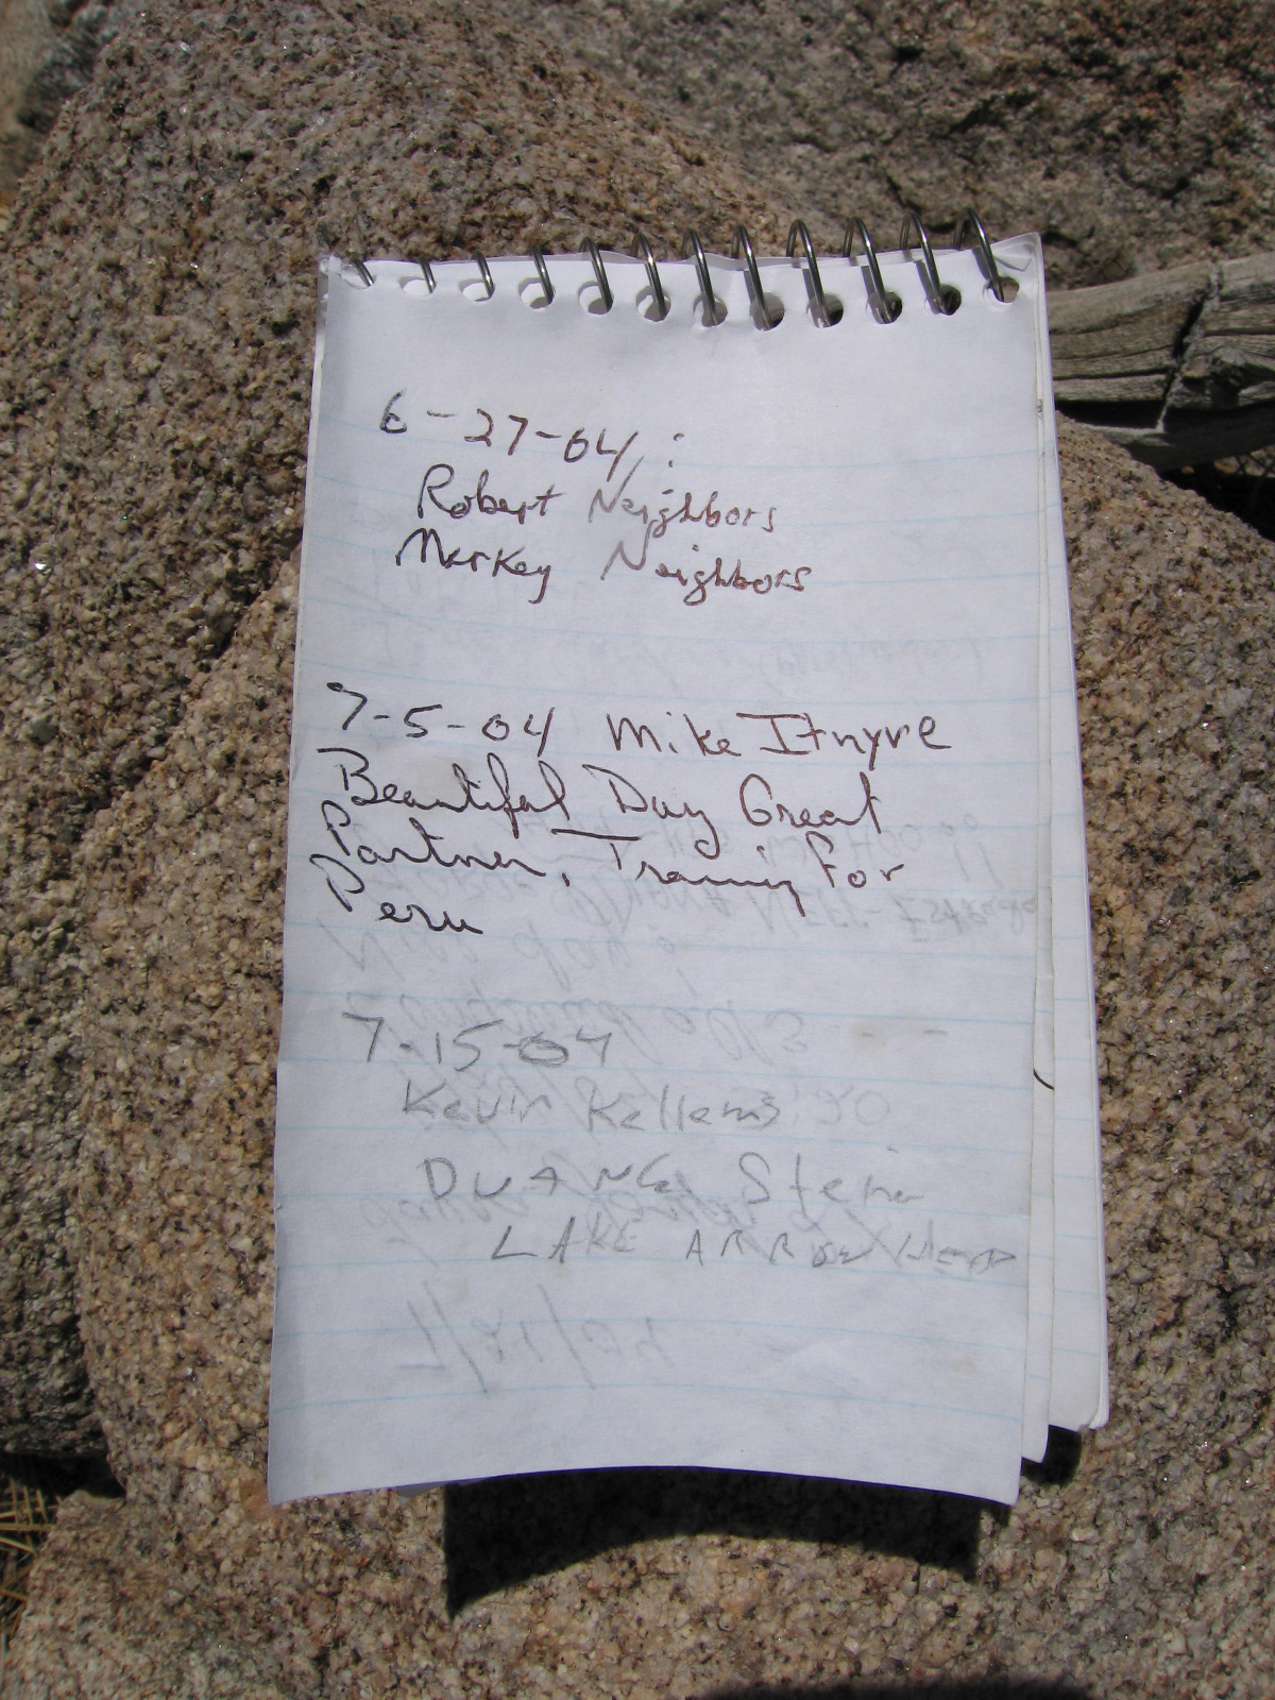 6-27-04:
Robert Neighbors
Markey Neighbors
7-5-04 Mike Itnyre
Beautiful Day Great
Partner, Training For
Peru
7-15-04
Kevin Kellems
DUANE Stein
LAKE ARROWHEAD